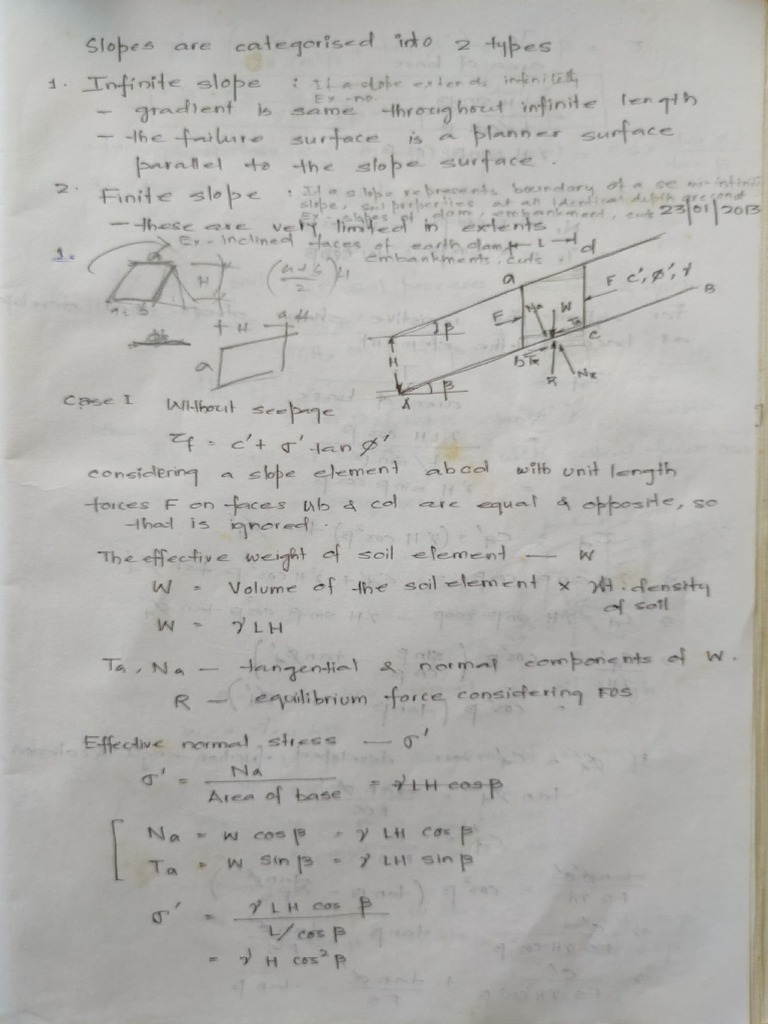 Slopes are categorised into 2 types
1. Infinite slope : If a slope extends infinitely
Ex - no.
- gradient is same throughout infinite length
- the failure surface is a planner surface
parallel to the slope surface.
2. Finite slope : If a slope represents boundary of a semi-infinite
slope, soil properties at an identical depth are const
Ex - slopes of dam, embankment, cuts 23/01/2013
- these are very limited in extents
Ex - inclined faces of earth dam
embankments, cuts
1.
H
(a+b/2)H
a
L
a d
F c', φ', γ
B
E Na W Ta
β
H
b TR C
R NR
β
A
Case I Without seepage
τf = c' + σ' tan φ'
considering a slope element abcd with unit length
forces F on faces ab & cd are equal & opposite, so
that is ignored.
The effective weight of soil element — W
W = Volume of the soil element x wt. density
of soil
W = γ LH
Ta, Na — tangential & normal components of W.
R — equilibrium force considering FOS
Effective normal stress — σ'
σ' = Na / Area of base = γ LH cos β
Na = W cos β = γ LH cos β
Ta = W sin β = γ LH sin β
σ' = γ LH cos β / L/cos β
= γ H cos² β